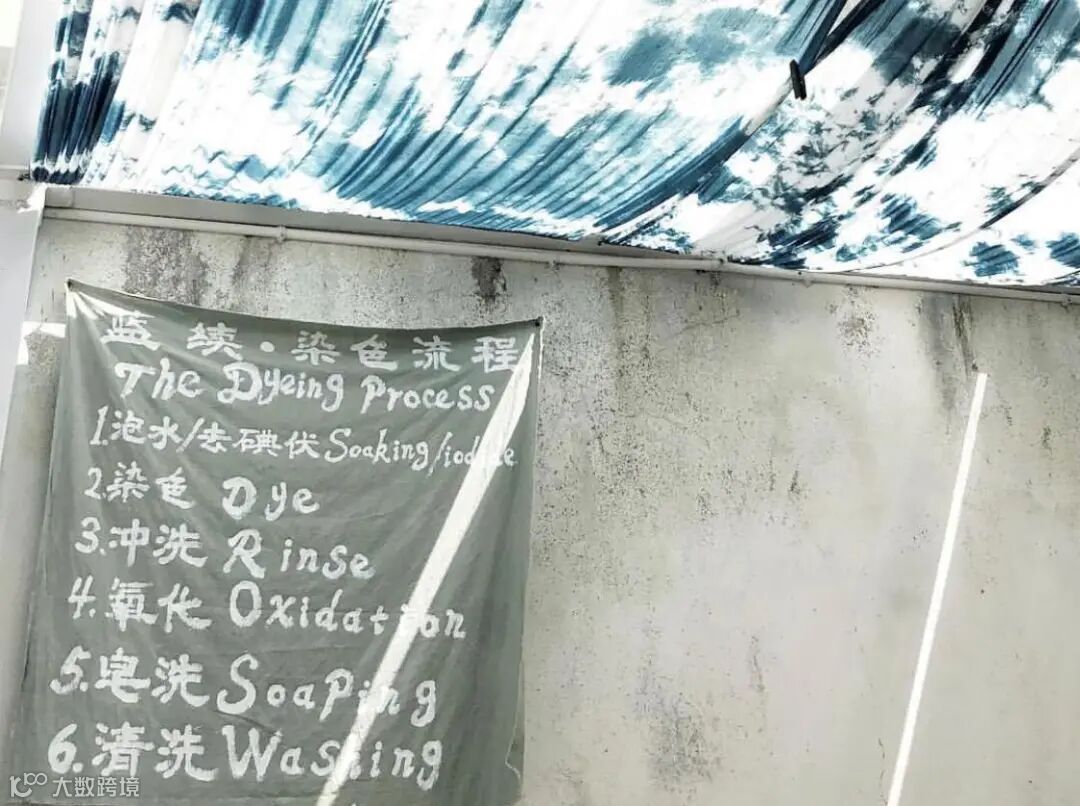 蓝续·染色流程
The Dyeing Process
1.泡水/去碘伏 Soaking/iodine
2.染色 Dye
3.冲洗 Rinse
4.氧化 Oxidation
5.皂洗 Soaping
6.清洗 Washing
大数跨境